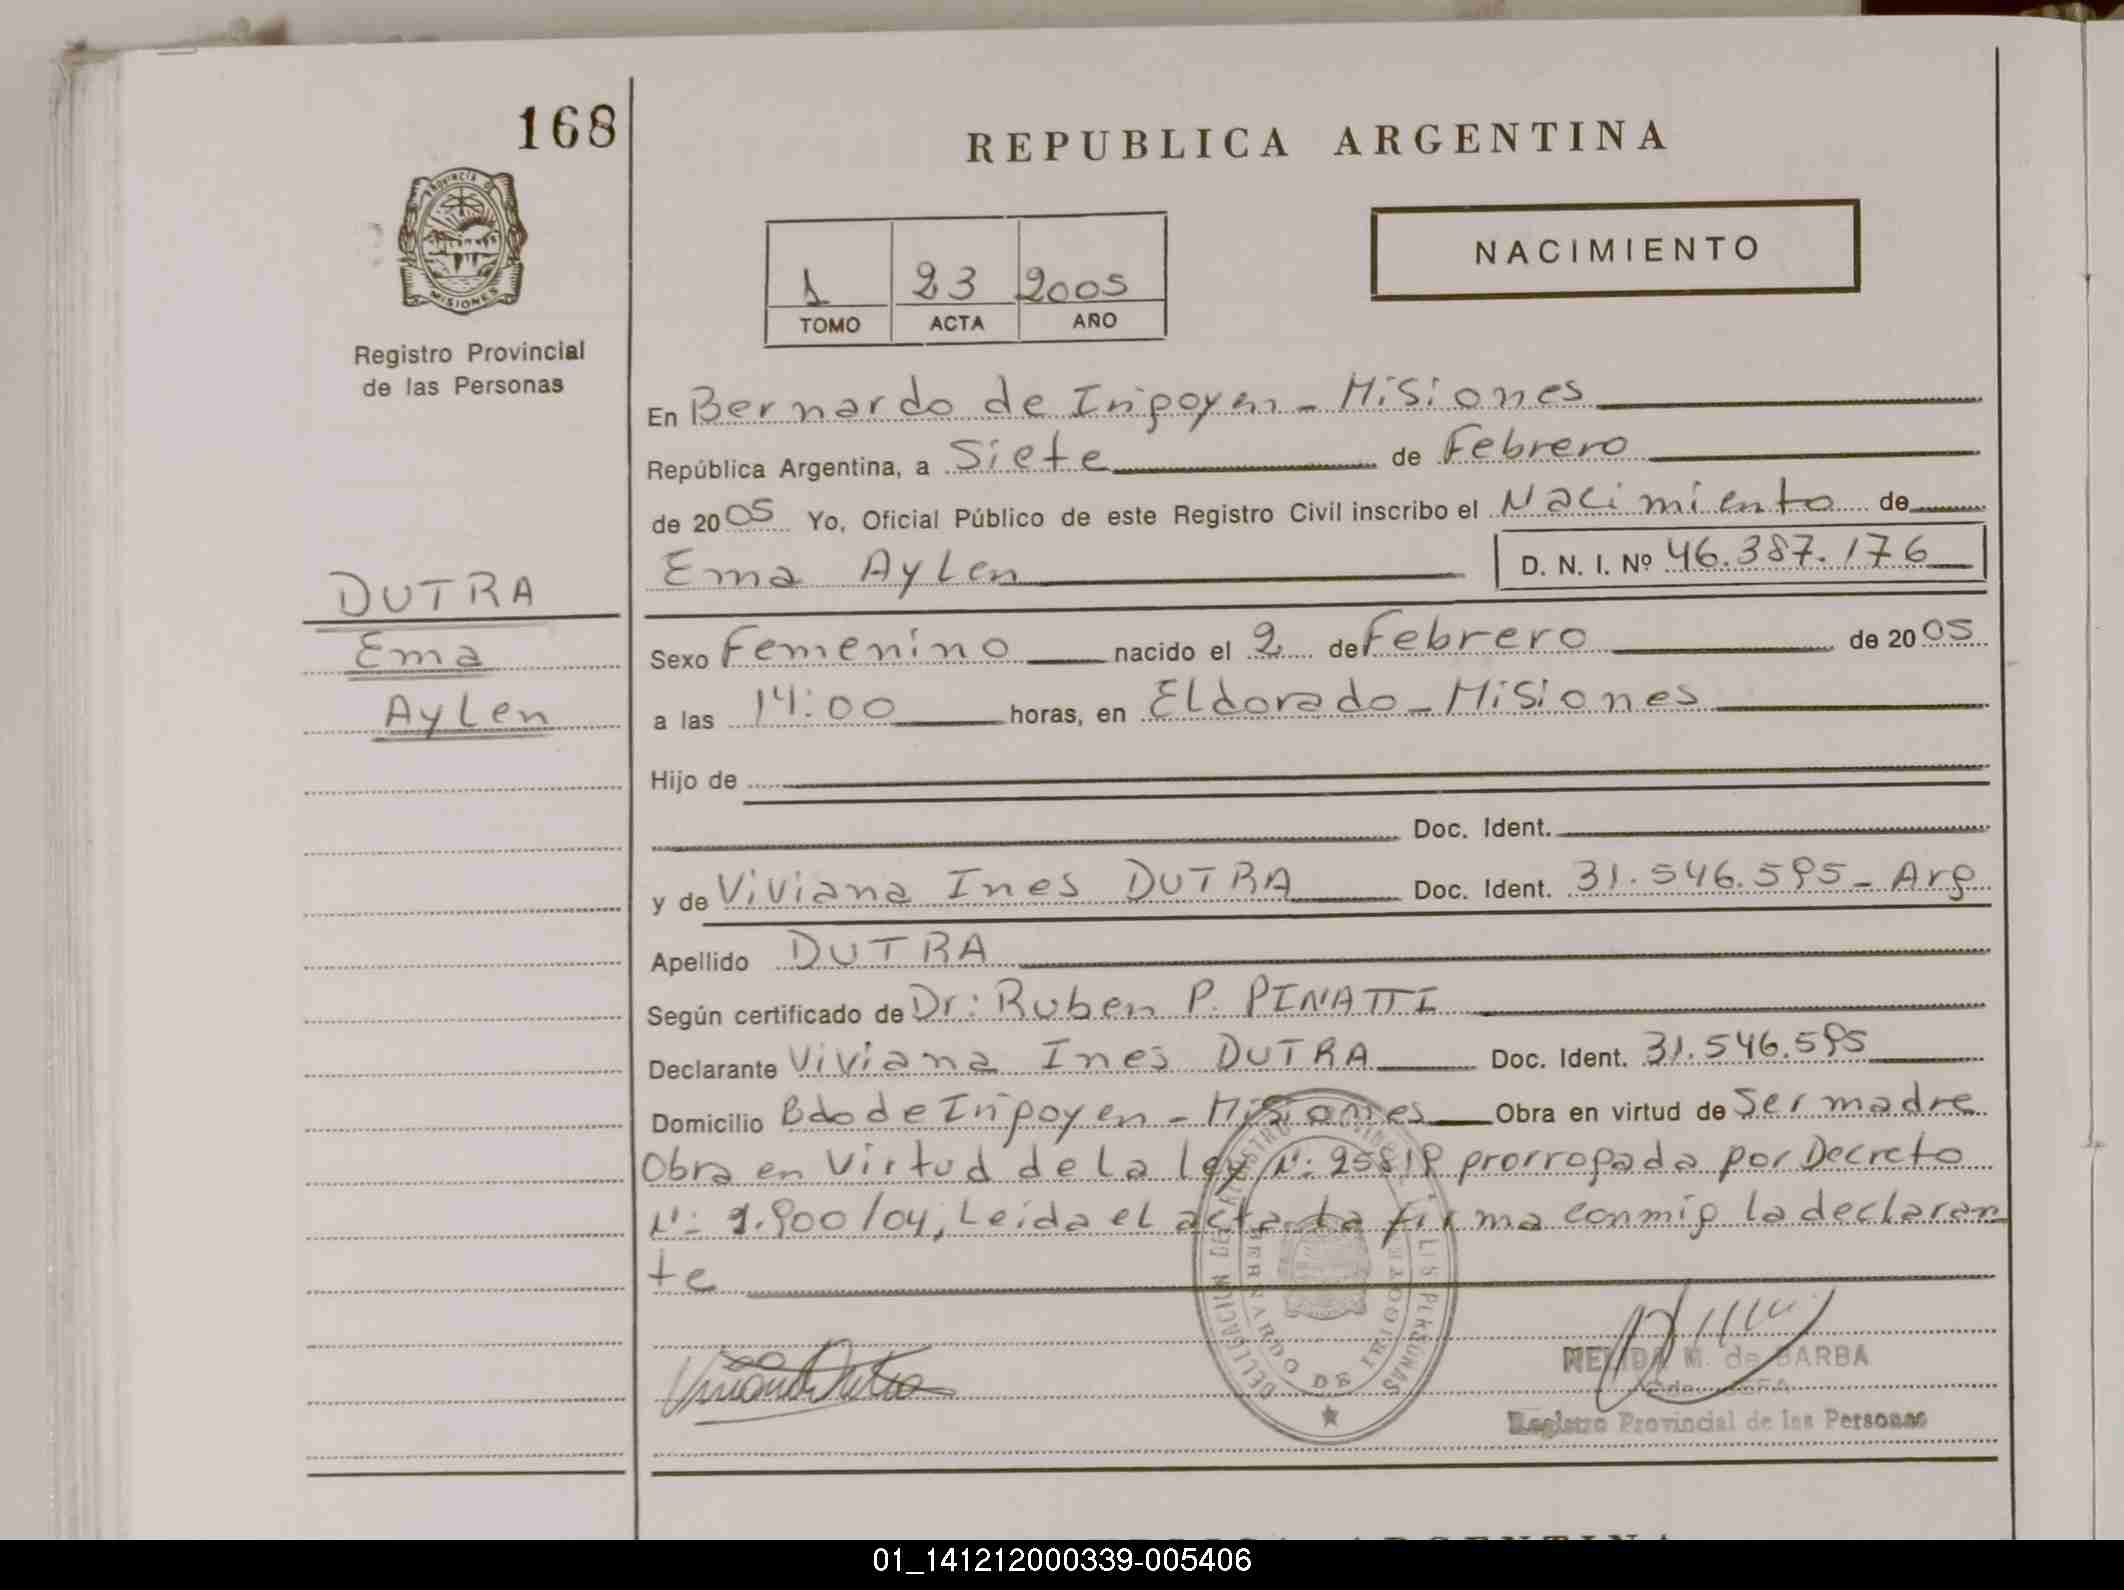 168
REPUBLICA ARGENTINA
PROVINCIA DE
MISIONES
Registro Provincial
de las Personas
1 23 2005
TOMO ACTA AÑO
NACIMIENTO
En Bernardo de Irigoyen - Misiones
República Argentina, a Siete de Febrero
de 2005 Yo, Oficial Público de este Registro Civil inscribo el Nacimiento de
Ema Aylen D. N. I. Nº 46.387.176
DUTRA
Ema
Aylen
Sexo Femenino nacido el 2 de Febrero de 2005
a las 14:00 horas, en Eldorado - Misiones
Hijo de
Doc. Ident.
y de Viviana Ines DUTRA Doc. Ident. 31.546.595 - Arg
Apellido DUTRA
Según certificado de Dr: Ruben P. PINATTI
Declarante Viviana Ines DUTRA Doc. Ident. 31.546.595
Domicilio Bdo de Irigoyen - Misiones Obra en virtud de Ser madre
Obra en Virtud de la ley N: 25819 prorrogada por Decreto
N: 1.900/04, Leida el acta la firma conmig la declaran
te
BERNARDO DE IRIGOYEN
Viviana Dutra
NELIDA M. de BARBA
Registro Provincial de las Personas
REPUBLICA ARGENTINA
01_141212000339-005406